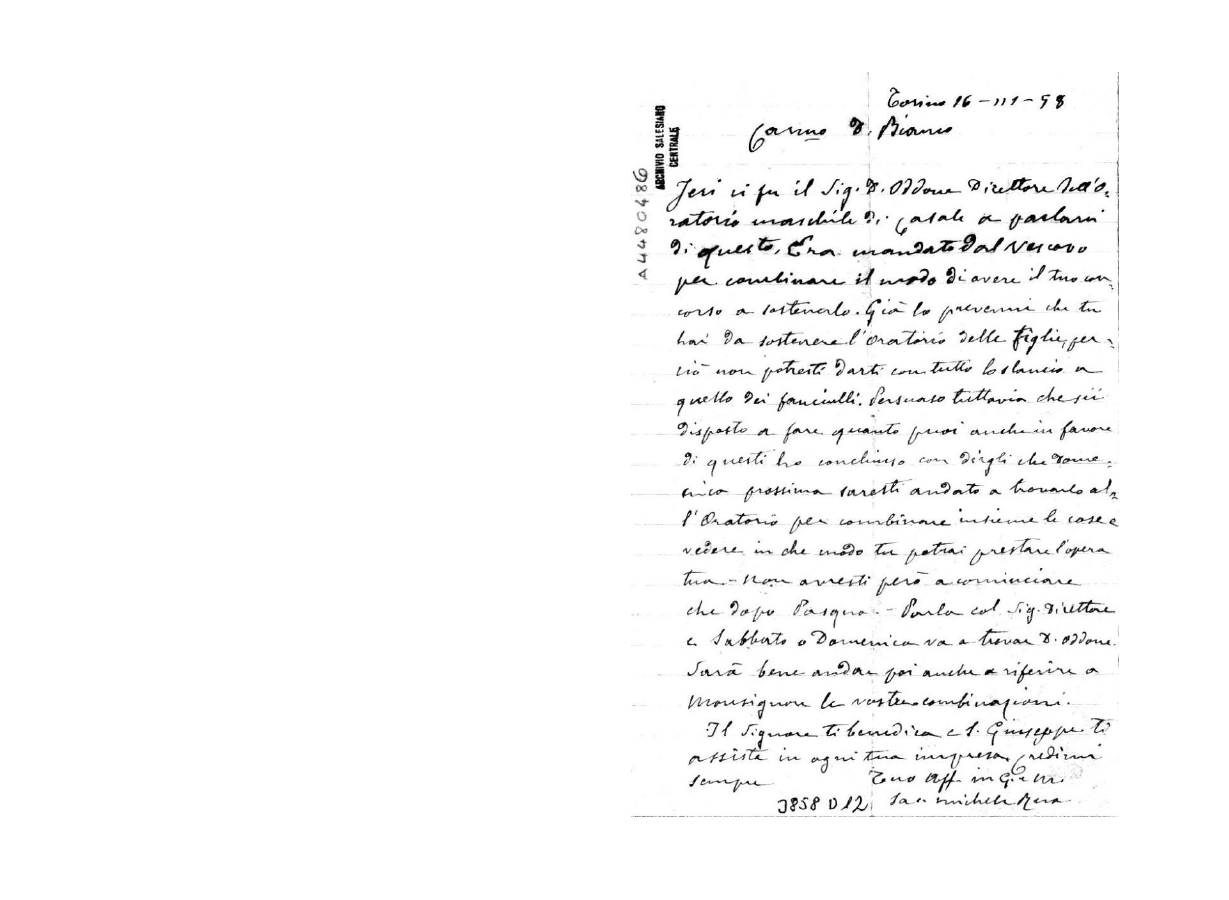 Torino 16-III-98
Carmo D. Bianco
ARCHIVIO SALESIANO
CENTRALE
A4480486
Jeri ci fu il Sig. D. Oddone Direttore dell'O-
ratorio maschile di Casale a parlarmi
di questo. Era mandato dal Vescovo
per combinare il modo di avere il tuo con-
corso a sostenerlo. Già lo prevenni che tu
hai da sostenere l'Oratorio delle figlie, per-
ciò non potresti darti con tutto lo slancio a
quello dei fanciulli. Persuaso tuttavia che sii
disposto a fare quanto puoi anche in favore
di questi ho conchiuso con dirgli che dome-
nica prossima saresti andato a trovarlo al-
l'Oratorio per combinare insieme le cose e
vedere in che modo tu potrai prestare l'opera
tua. - Non avresti però a cominciare
che dopo Pasqua. - Parla col Sig. Direttore
e Sabbato o Domenica va a trovar D. Oddone.
Sarà bene andar poi anche a riferire a
Monsignore le vostre combinazioni.
Il Signore ti benedica e S. Giuseppe ti
assista in ogni tua impresa. Credimi
sempre Tuo aff. in G. e M.
Sac. Michele Rua
3858 D12